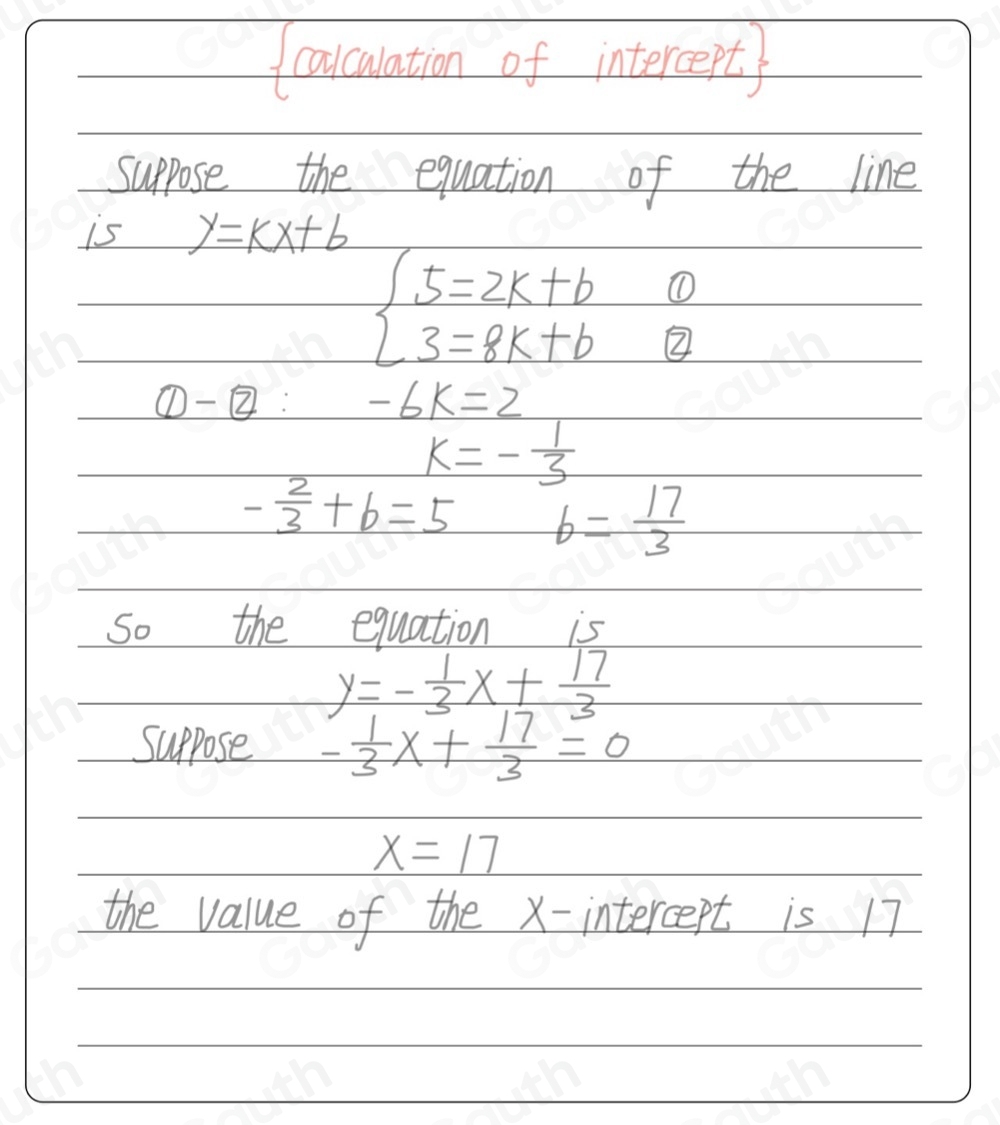 {calculation of intercept}
Suppose the equation of the line
is y=kx+b
{5=2k+b ①
3=8k+b ②
①-②: -6k=2
k=-1/3
-2/3+b=5 b=17/3
So the equation is
y=-1/3x+17/3
Suppose -1/3x+17/3=0
x=17
the value of the x-intercept is 17